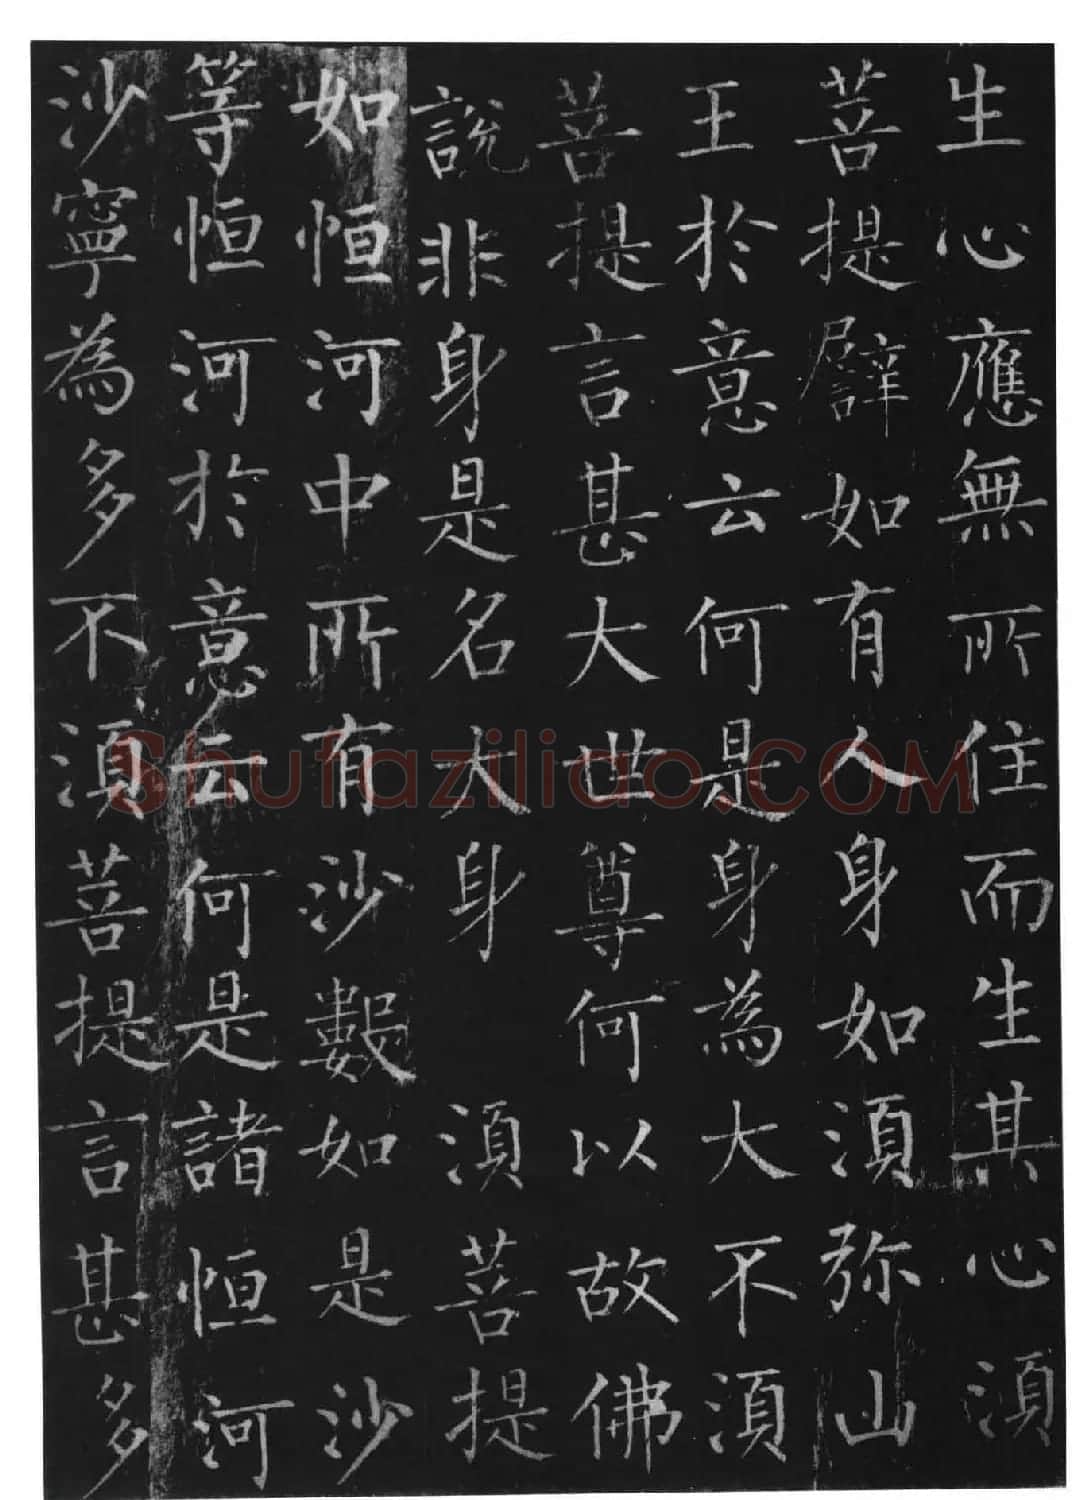 生心應無所住而生其心湏
菩提譬如有人身如湏弥山
王於意云何是身為大不湏
菩提言甚大世尊何以故佛
說非身是名大身 湏菩提
如恒河中所有沙數如是沙
等恒河於意云何是諸恒河
沙寧為多不湏菩提言甚多
Shufaziliao.COM